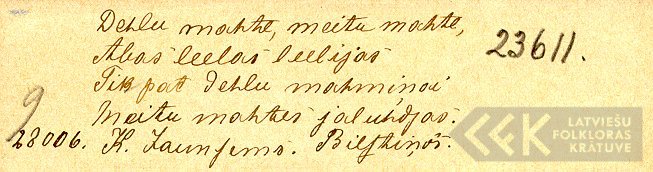 Dehlu mahte, meitu mahte,
Abas leelas leelijas
23611.
Tik pat dehlu mahminai
Meitu mahtes jaluhdsas.
9
28006. K. Jaunsems. Bilskinōs.
LATVIEŠU
FOLKLORAS
KRĀTUVE